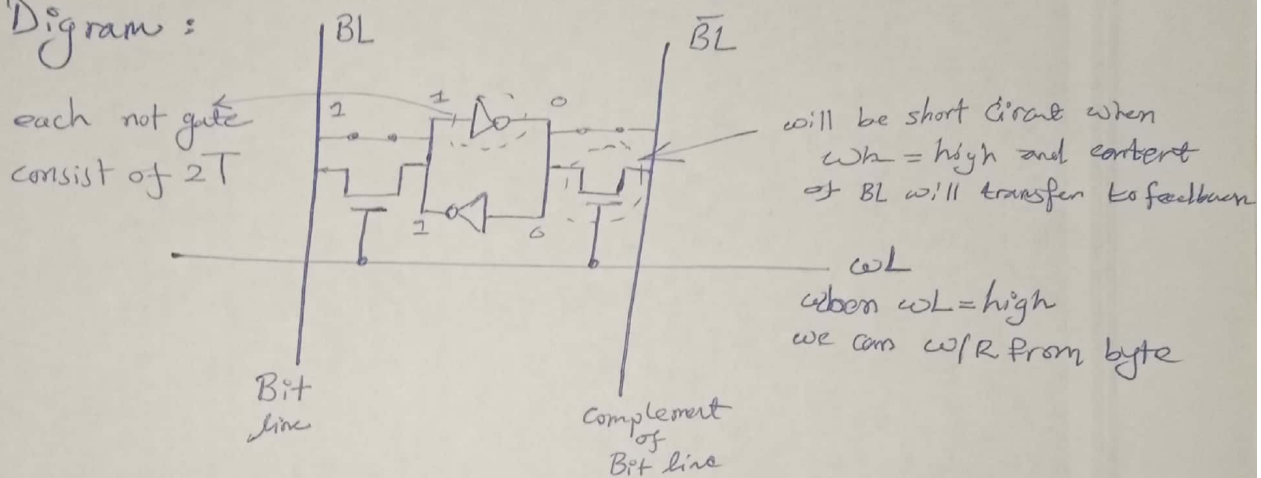 Digram :
BL
B̅L̅
each not gate
consist of 2T
1
1
0
1
0
will be short Circut when
WL = high and content
of BL will transfer to feedback
WL
when WL = high
we can W/R from byte
Bit
line
Complement
of
Bit line